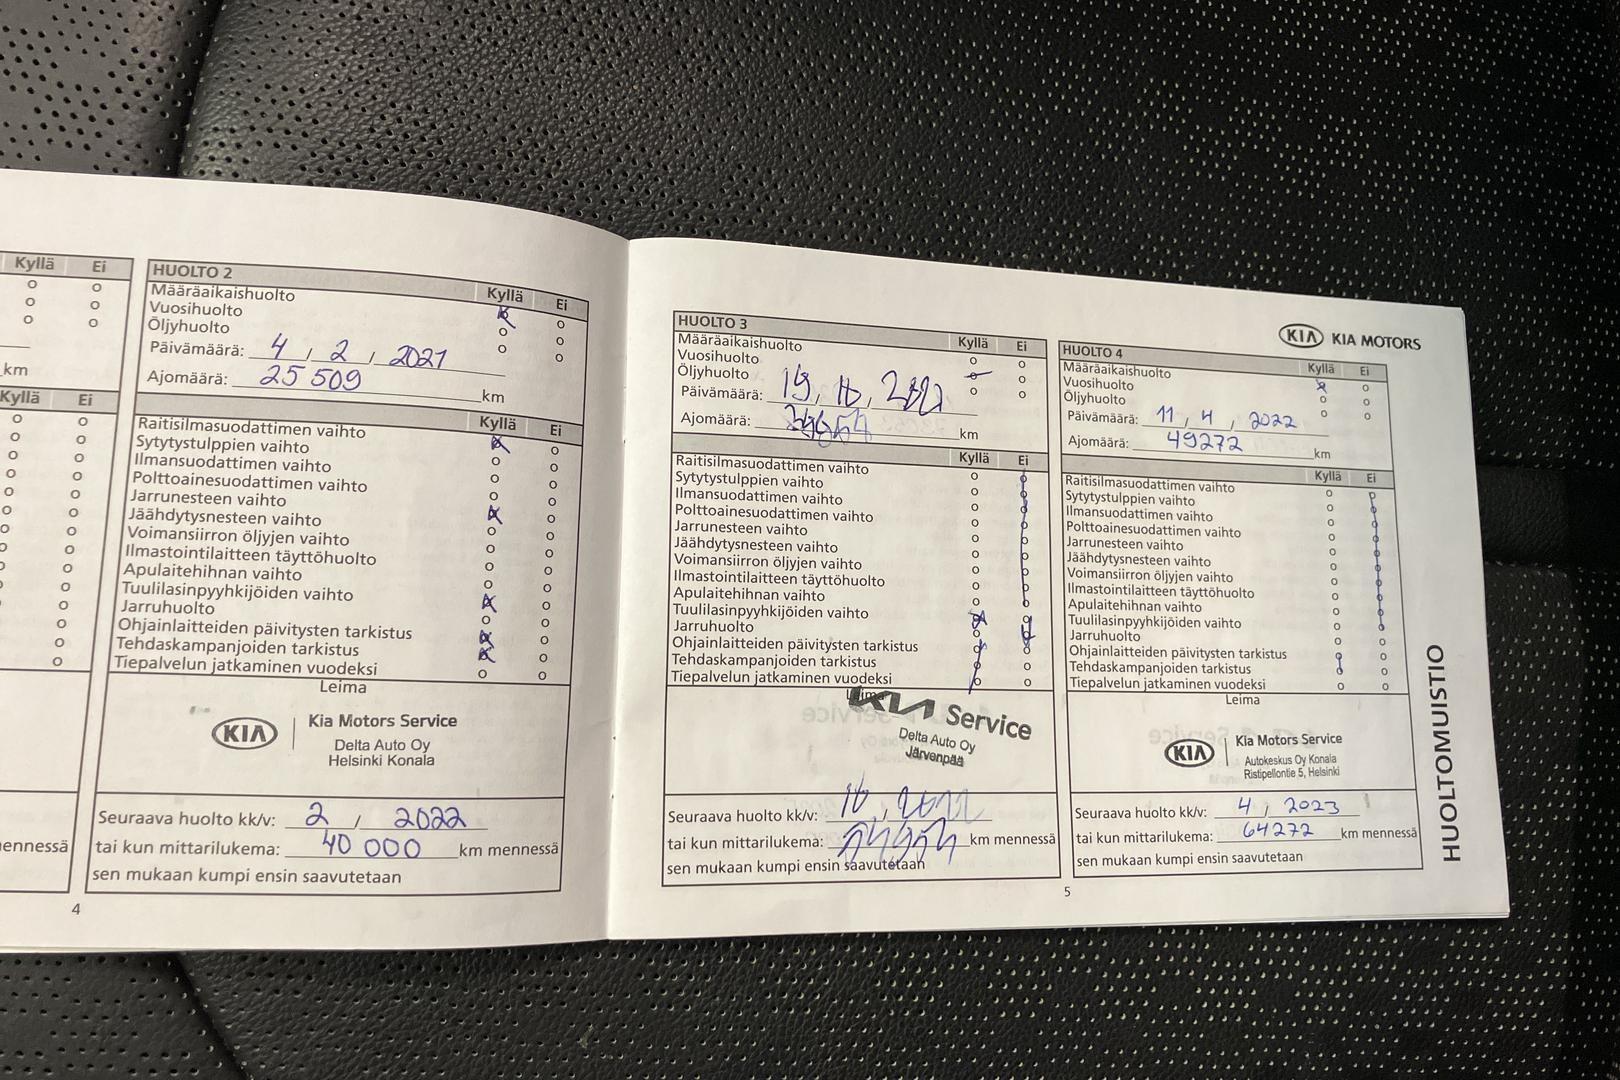 Kyllä Ei
km
Kyllä Ei
mennessä
4
HUOLTO 2
Kyllä Ei
Määräaikaishuolto
Vuosihuolto
Öljyhuolto
Päivämäärä: 4 / 2 / 2021
Ajomäärä: 25 509 km
Kyllä Ei
Raitisilmasuodattimen vaihto
Sytytystulppien vaihto
Ilmansuodattimen vaihto
Polttoainesuodattimen vaihto
Jarrunesteen vaihto
Jäähdytysnesteen vaihto
Voimansiirron öljyjen vaihto
Ilmastointilaitteen täyttöhuolto
Apulaitehihnan vaihto
Tuulilasinpyyhkijöiden vaihto
Jarruhuolto
Ohjainlaitteiden päivitysten tarkistus
Tehdaskampanjoiden tarkistus
Tiepalvelun jatkaminen vuodeksi
Leima
KIA Kia Motors Service
Delta Auto Oy
Helsinki Konala
Seuraava huolto kk/v: 2 / 2022
tai kun mittarilukema: 40 000 km mennessä
sen mukaan kumpi ensin saavutetaan
HUOLTO 3
Kyllä Ei
Määräaikaishuolto
Vuosihuolto
Öljyhuolto
Päivämäärä:
Ajomäärä: km
Kyllä Ei
Raitisilmasuodattimen vaihto
Sytytystulppien vaihto
Ilmansuodattimen vaihto
Polttoainesuodattimen vaihto
Jarrunesteen vaihto
Jäähdytysnesteen vaihto
Voimansiirron öljyjen vaihto
Ilmastointilaitteen täyttöhuolto
Apulaitehihnan vaihto
Tuulilasinpyyhkijöiden vaihto
Jarruhuolto
Ohjainlaitteiden päivitysten tarkistus
Tehdaskampanjoiden tarkistus
Tiepalvelun jatkaminen vuodeksi
Leima
KIA Service
Delta Auto Oy
Järvenpää
Seuraava huolto kk/v:
tai kun mittarilukema: km mennessä
sen mukaan kumpi ensin saavutetaan
5
KIA KIA MOTORS
HUOLTO 4
Kyllä Ei
Määräaikaishuolto
Vuosihuolto
Öljyhuolto
Päivämäärä: 11 / 4 / 2022
Ajomäärä: 49272 km
Kyllä Ei
Raitisilmasuodattimen vaihto
Sytytystulppien vaihto
Ilmansuodattimen vaihto
Polttoainesuodattimen vaihto
Jarrunesteen vaihto
Jäähdytysnesteen vaihto
Voimansiirron öljyjen vaihto
Ilmastointilaitteen täyttöhuolto
Apulaitehihnan vaihto
Tuulilasinpyyhkijöiden vaihto
Jarruhuolto
Ohjainlaitteiden päivitysten tarkistus
Tehdaskampanjoiden tarkistus
Tiepalvelun jatkaminen vuodeksi
Leima
KIA Kia Motors Service
Autokeskus Oy Konala
Ristipellontie 5, Helsinki
Seuraava huolto kk/v: 4 / 2023
tai kun mittarilukema: 64272 km mennessä
sen mukaan kumpi ensin saavutetaan
HUOLTOMUISTIO